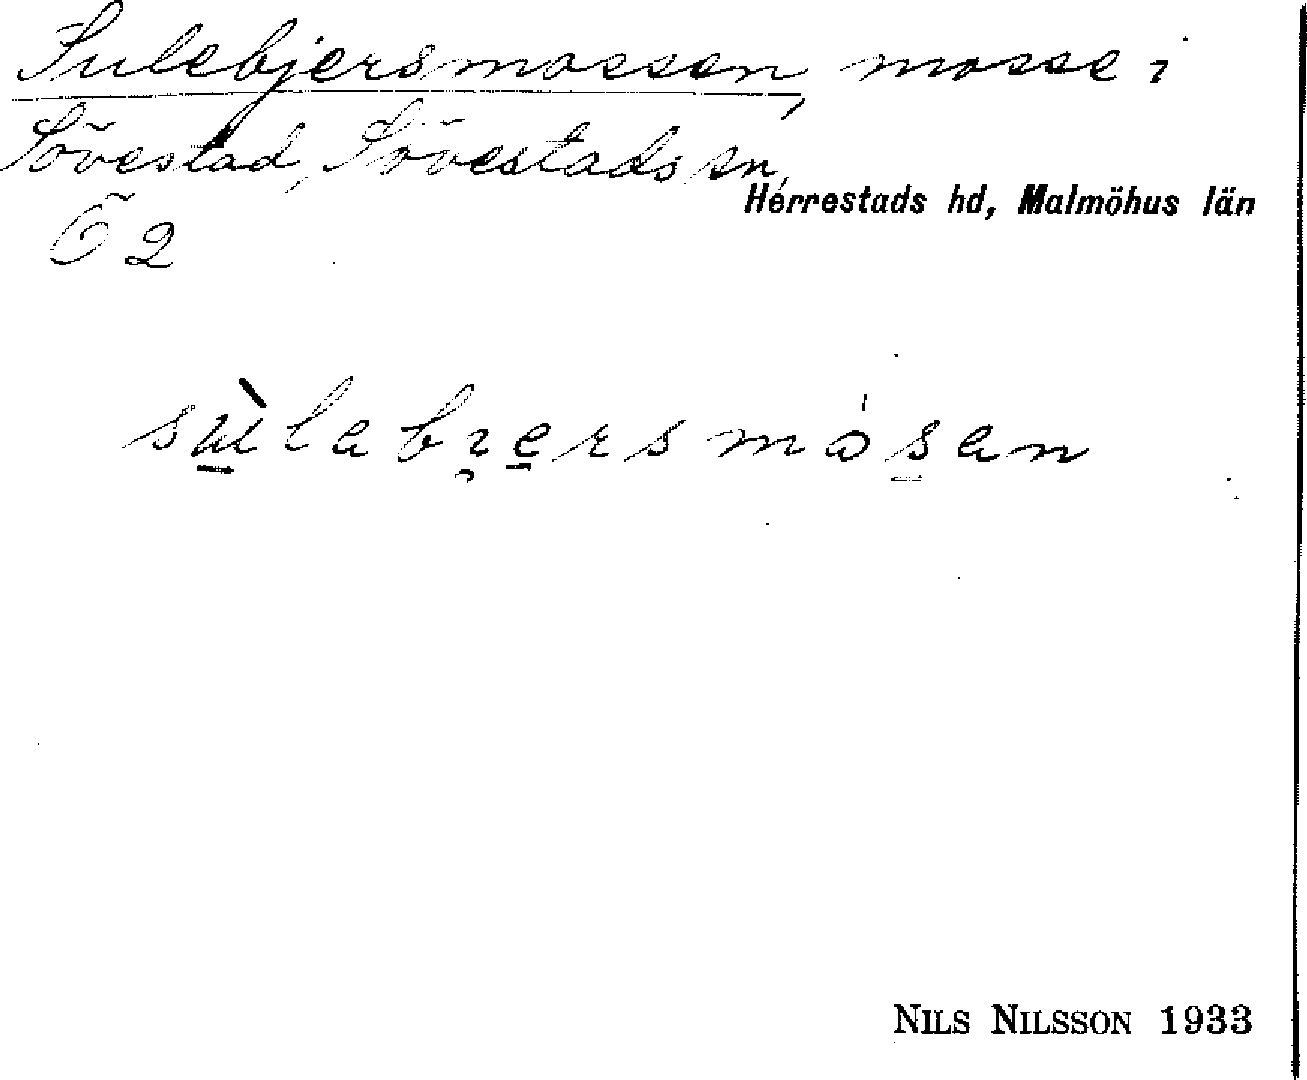 Sulebjersmossen, mosse i
Sövestad, Sövestads sn,
Herrestads hd, Malmöhus län
Ö 2
sùlabrersmósan
NILS NILSSON 1933